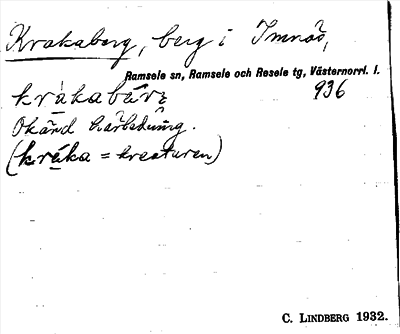 Krakaberg, berg i Imnäs,
Ramsele sn, Ramsele och Resele tg, Västernorrl. l.
936
Okänd härledning.
(kråka = kreaturen)
C. LINDBERG 1932.